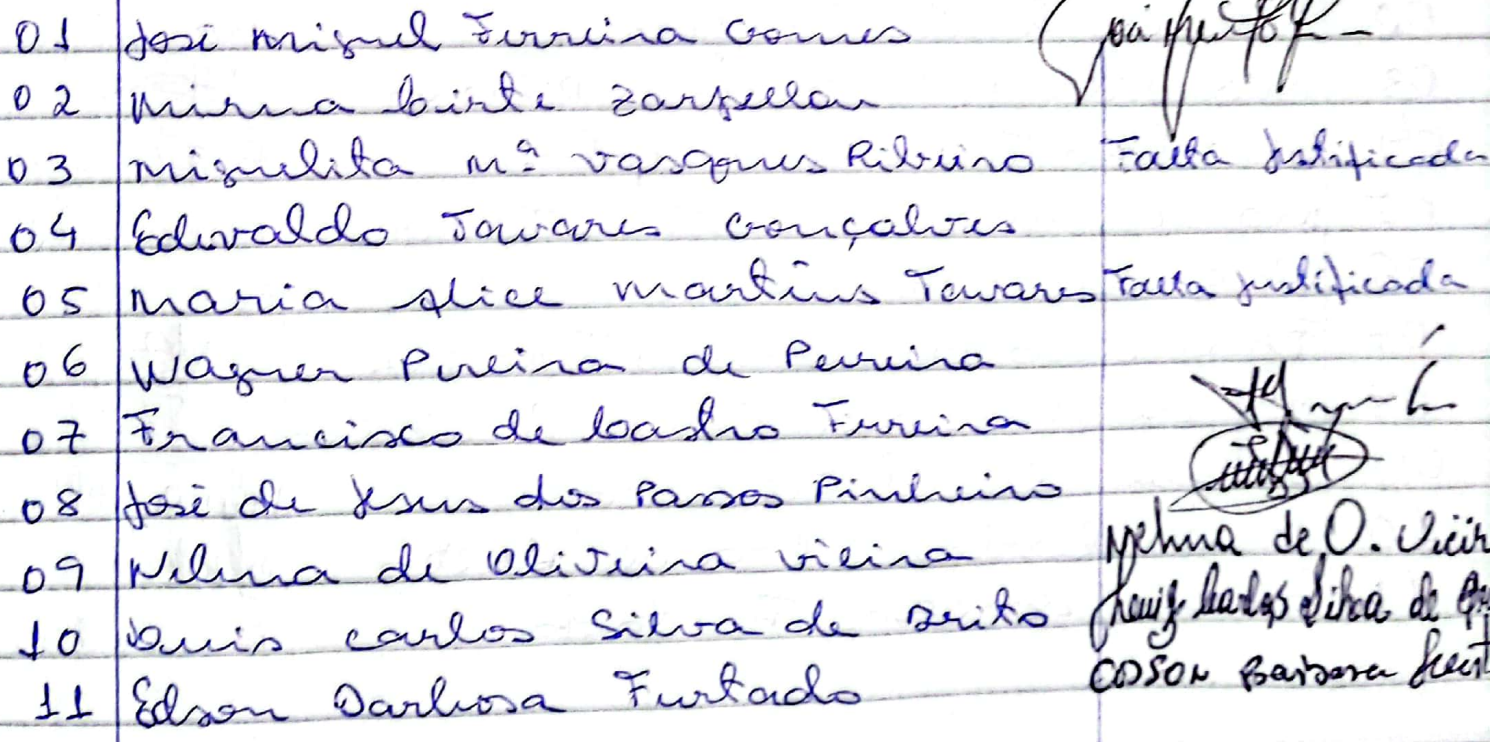 01 José Miguel Ferreira Gomes
02 Mirna Cirte Zarpellon
03 Miguelita Mª Vasques Ribeiro Falta Justificada
04 Edivaldo Tavares Gonçalves
05 Maria Alice Martins Tavares Falta Justificada
06 Wagner Pereira de Pereira
07 Francisco de Castro Ferreira
08 José de Jesus dos Passos Pinheiro
09 Nelma de Oliveira Vieira Nelma de O. Vieir
10 Luis Carlos Silva de Brito Luiz Carlos Silva de
11 Edson Barbosa Furtado EDSON Barbosa